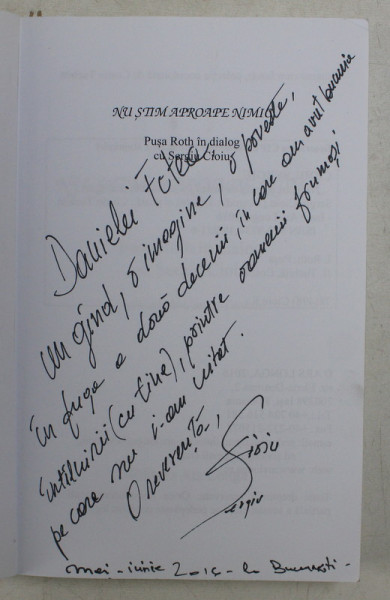 NU ȘTIM APROAPE NIMIC
Pușa Roth în dialog
cu Sergiu Cioiu
Danielei
Un gând, o imagine, o poveste,
în fuga a două decenii, în care am avut bucuria
întîlnirii (cu tine), printre oamenii frumoși
pe care nu i-am uitat.
O reverență,
Sergiu Cioiu
mai - iunie - la București -